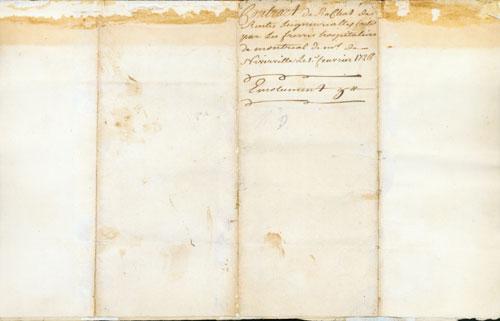 Contract de Rachat de
Rentes Seigneurialles
par Les freres hospitaliers
de montreal de mr. de
Niverville Le 1er Janvier 1726
Emolument